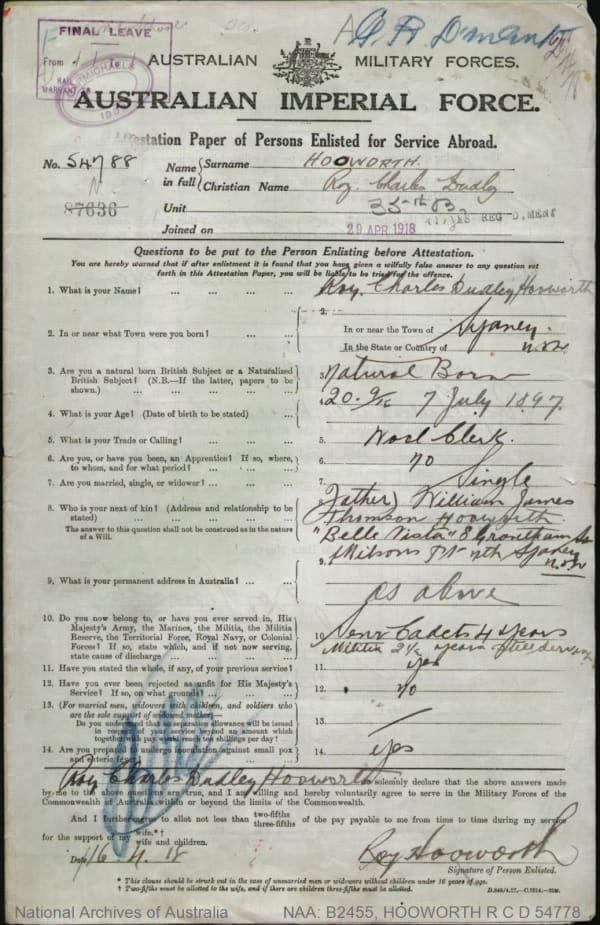 FINAL LEAVE
From
RAIL
WARRANT
AUSTRALIAN MILITARY FORCES.
AUSTRALIAN IMPERIAL FORCE.
Attestation Paper of Persons Enlisted for Service Abroad.
No. 54788 Name in full { Surname HOOWORTH.
Christian Name Roy Charles Dudley
87636 Unit
Joined on 29 APR 1918
Questions to be put to the Person Enlisting before Attestation.
You are hereby warned that if after enlistment it is found that you have given a wilfully false answer to any question set
forth in this Attestation Paper, you will be liable to be tried for the offence.
1. What is your Name? ... ... ... ... Roy Charles Dudley Hooworth
2. In or near what Town were you born? ... ... 2. In or near the Town of Sydney
In the State or Country of N.S.W.
3. Are you a natural born British Subject or a Naturalized
British Subject? (N.B.—If the latter, papers to be
shown.) ... ... ... ... ... 3. Natural Born
4. What is your Age? (Date of birth to be stated) ... 4. 20 9/12 7 July 1897
5. What is your Trade or Calling? ... ... ... 5. Wool Clerk.
6. Are you, or have you been, an Apprentice? If so, where,
to whom, and for what period? ... ... ... 6. no
7. Are you married, single, or widower? ... ... 7. Single
8. Who is your next of kin? (Address and relationship to be
stated) ... ... ... ...
The answer to this question shall not be construed as in the nature
of a Will.
8. Father) William James
Thomson Hooworth
"Belle Vista" 8 Grantham
Milsons Pt Nth Sydney
N.S.W
9. What is your permanent address in Australia? ... ... 9. as above
10. Do you now belong to, or have you ever served in, His
Majesty's Army, the Marines, the Militia, the Militia
Reserve, the Territorial Force, Royal Navy, or Colonial
Forces? If so, state which, and if not now serving,
state cause of discharge ... ... ...
10. Senr Cadets 4 years
Militia 2½ years still serving
11. Have you stated the whole, if any, of your previous service? 11. yes
12. Have you ever been rejected as unfit for His Majesty's
Service? If so, on what grounds? ... ... 12. no
13. (For married men, widowers with children, and soldiers who
are the sole support of widowed mother—
Do you understand that no separation allowance will be issued
in respect of your service beyond an amount which
together with pay would reach ten shillings per day? 13.
14. Are you prepared to undergo inoculation against small pox
and enteric fever? 14. yes
I Roy Charles Dudley Hooworth solemnly declare that the above answers made
by me to the above questions are true, and I am willing and hereby voluntarily agree to serve in the Military Forces of the
Commonwealth of Australia within or beyond the limits of the Commonwealth.
And I further agree to allot not less than two-fifths
three-fifths of the pay payable to me from time to time during my service
for the support of my wife.* †
wife and children.
Date 16 4 18 Roy Hooworth
Signature of Person Enlisted.
* This clause should be struck out in the case of unmarried men or widowers without children under 16 years of age.
† Two-fifths must be allotted to the wife, and if there are children three-fifths must be allotted.
National Archives of Australia NAA: B2455, HOOWORTH R C D 54778